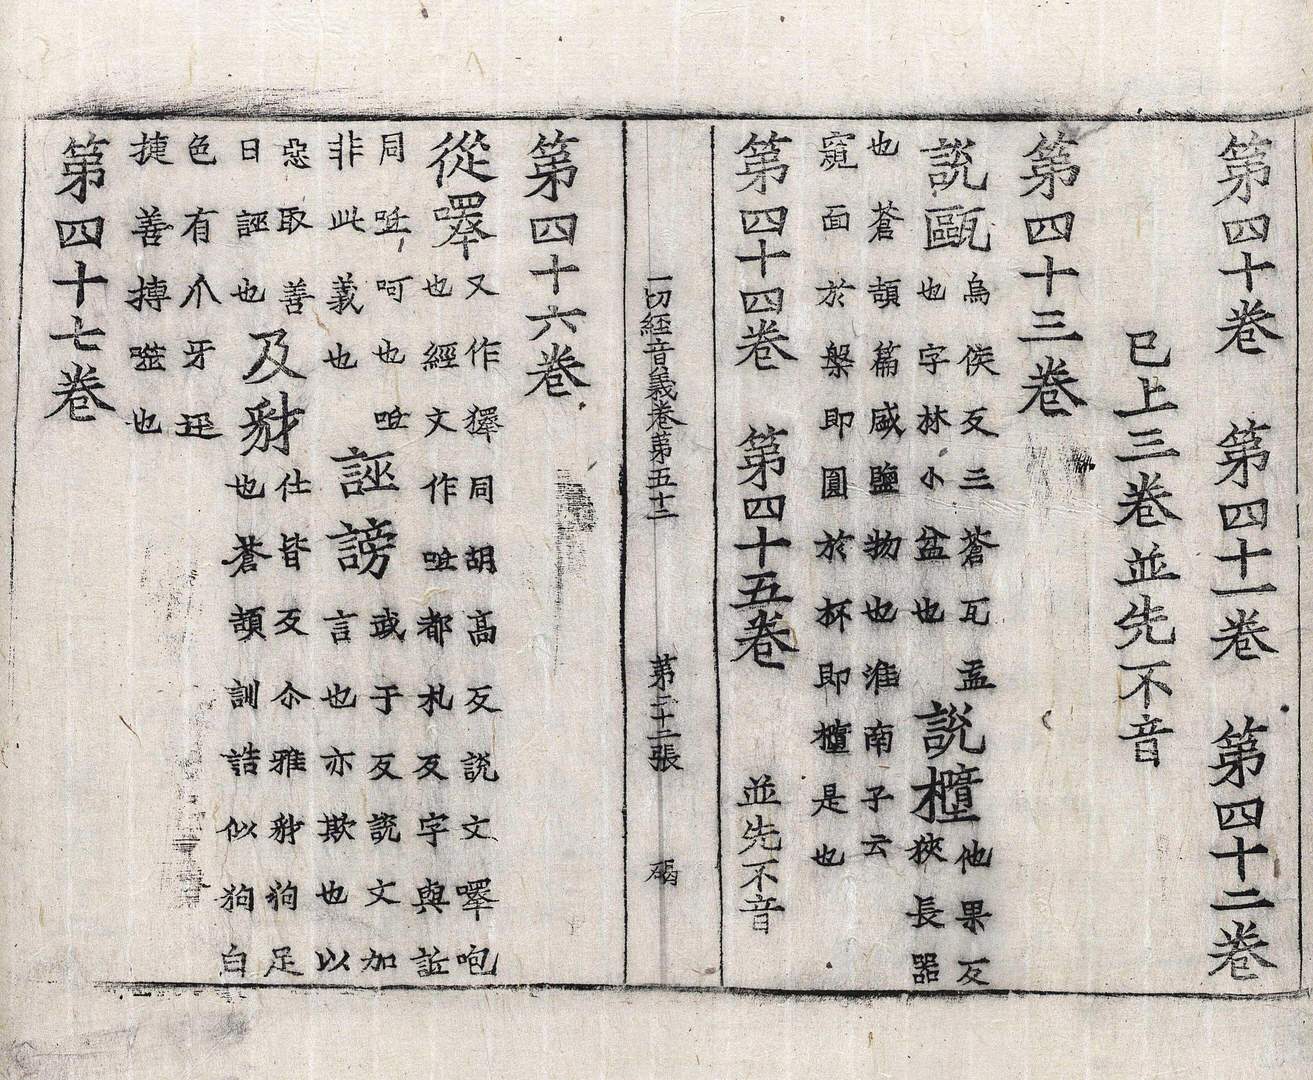 第四十卷　第四十一卷　第四十二卷
已上三卷並先不音
第四十三卷
說甌烏侯反三蒼瓦盂
也字林小盆也
說櫃他果反
狹長器
也蒼頡篇咸鹽物也淮南子云
窺面於槃即圓於杯即櫃是也
第四十四卷　第四十五卷　並先不音
一切經音義卷第五十二　第二十二張　碣
第四十六卷
從嘷又作獋同胡高反說文嘷咆
也經文作㖶都札反字與詆
同㖶呵也㖶
非此義也
誣謗武于反說文加
言也亦欺也以
惡取善
曰誣也
及豺仕皆反尒雅豺狗足
也蒼頡訓詁似狗白
色有爪牙迅
捷善搏噬也
第四十七卷